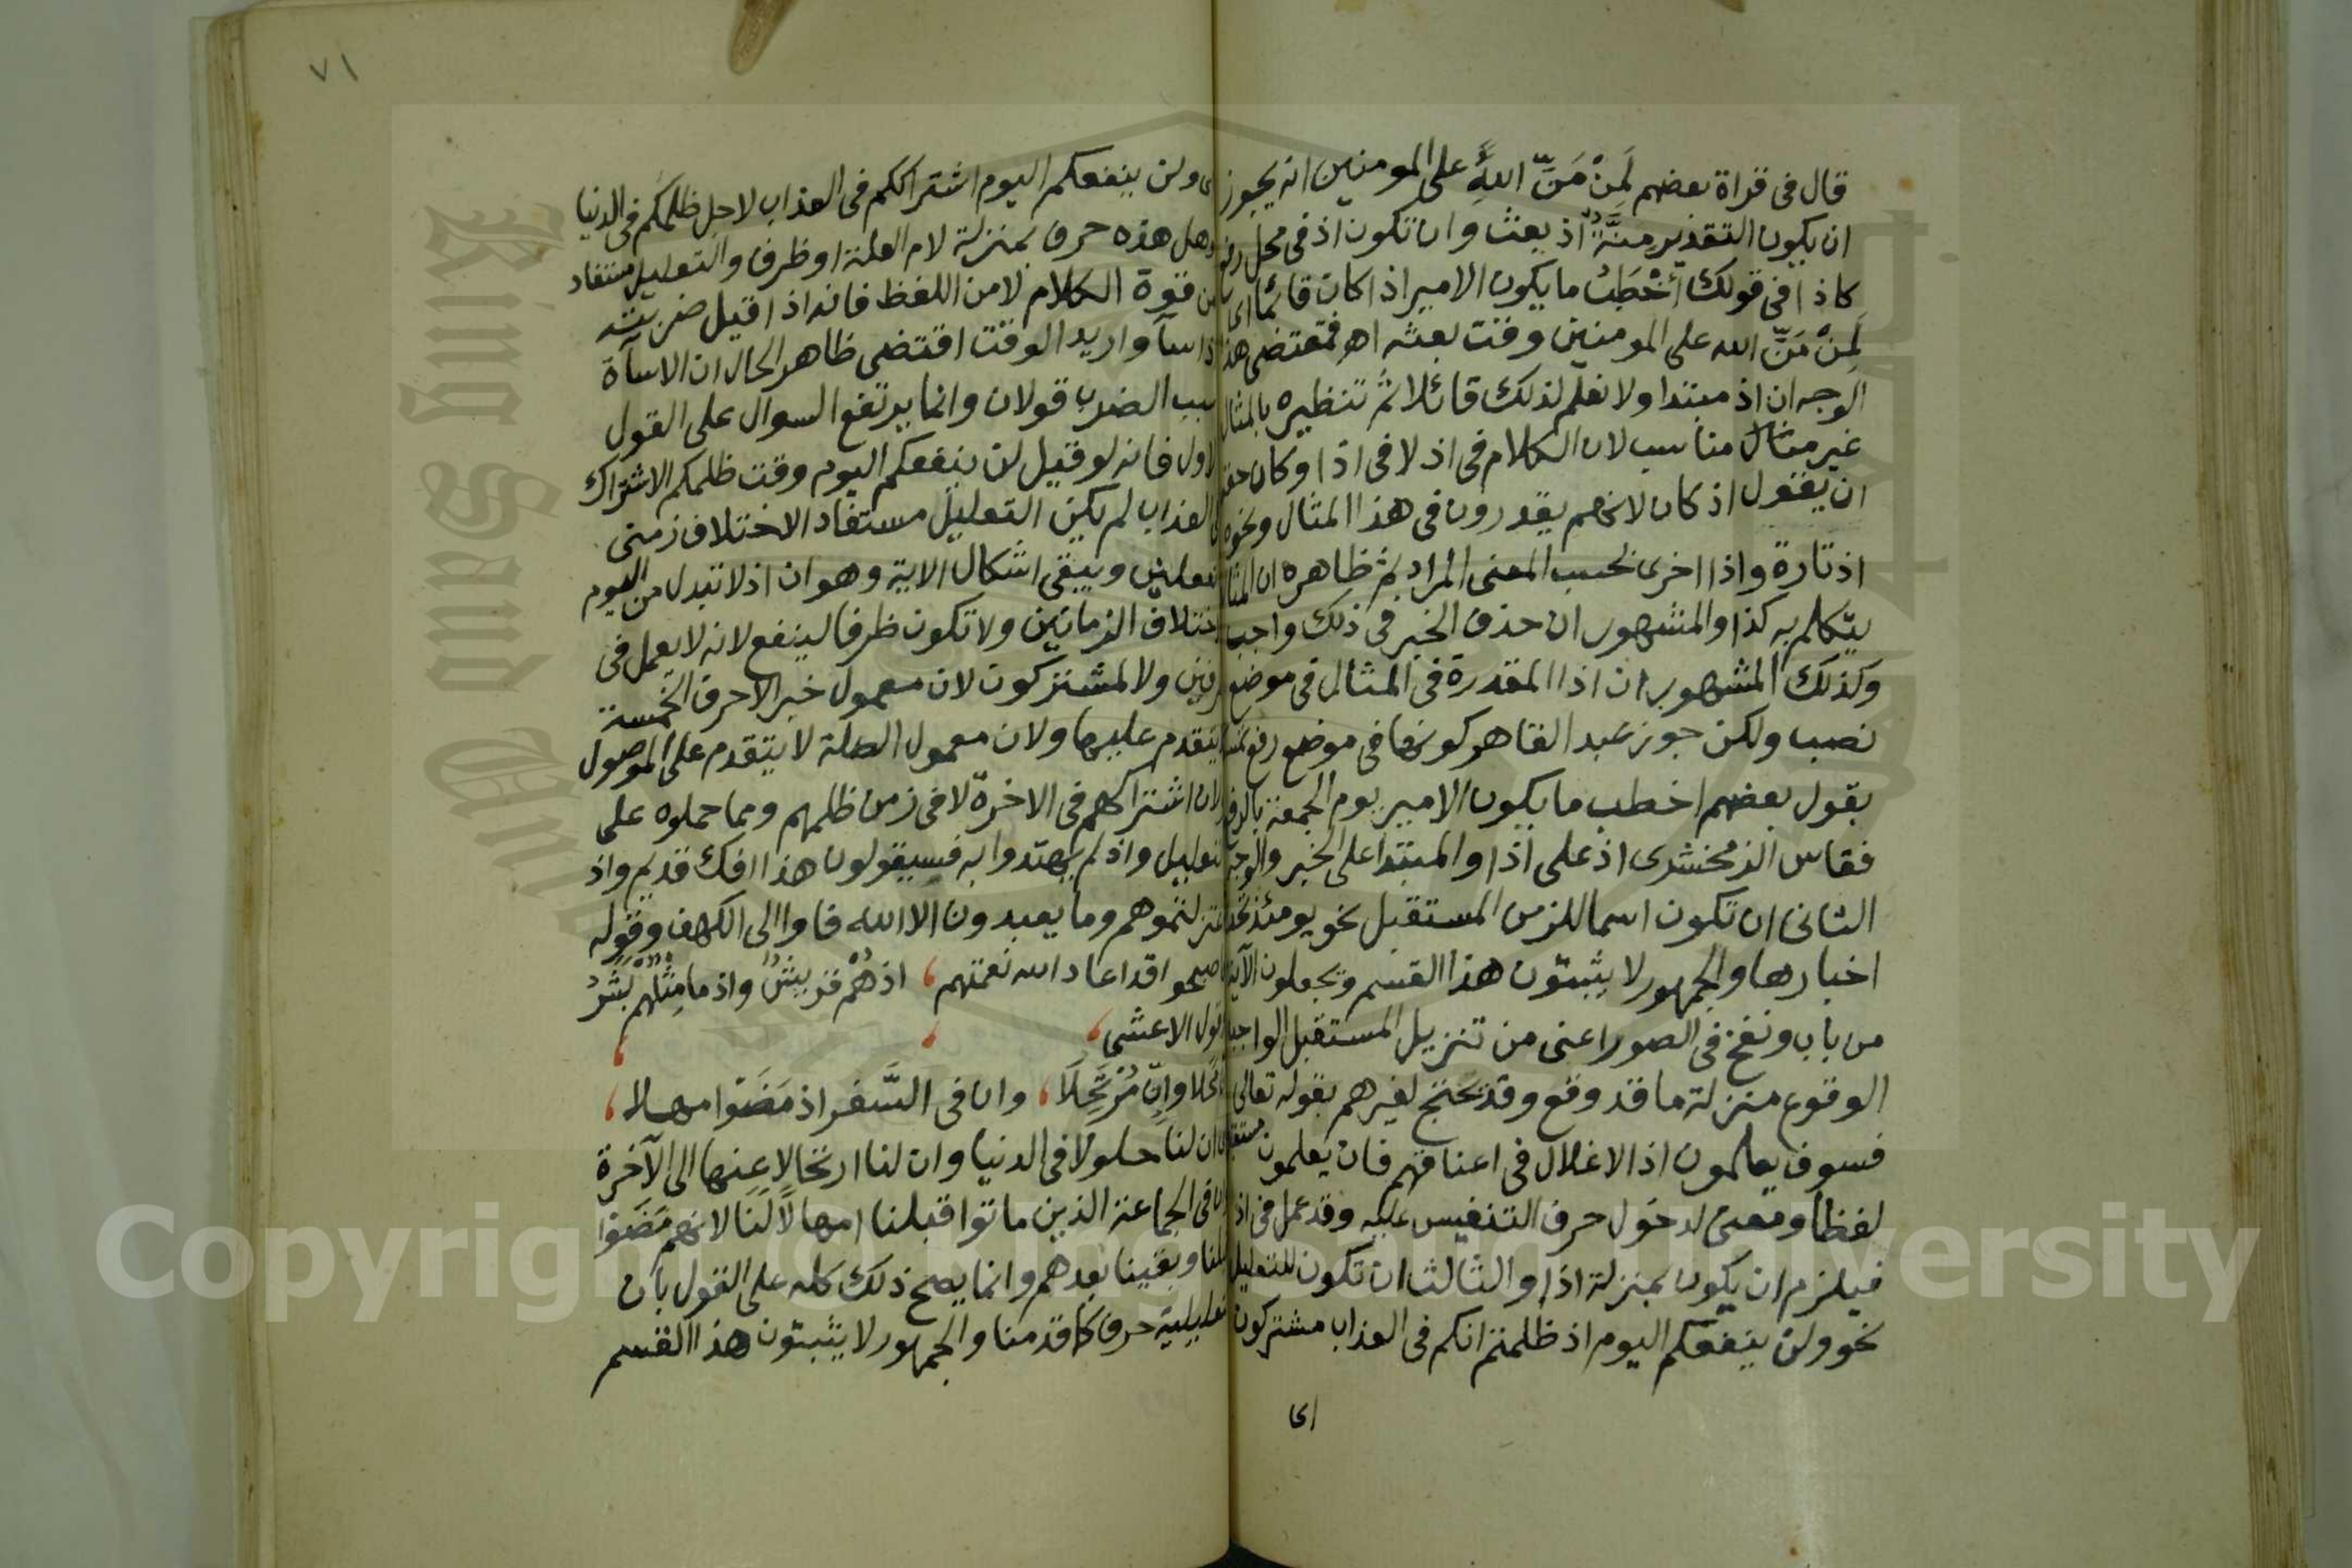 قال فى قراة بعضهم لَمِنْ مَنِّ اللهِ على المومنين انه يجوز
ان يكون التقدير مِنَّةٌ اذ بعث وان تكون اذ فى محل رفع
كاذا فى قولك أخْطَبُ ما يكون الامير اذا كان قائما اى
لَمِنْ مَنِّ الله على المومنين وقت بعثه اهـ فمقتضى هذا
الوجه ان اذ مبتدا ولا نعلم لذلك قائلا ثم تنظيره بالمثال
غير مناسب لان الكلام فى اذ لا فى اذا وكان حقه
ان يقول اذ كان لانهم يقدرون فى هذا المثال ونحوه
اذ تارة واذا اخرى بحسب المعنى المراد ثم ظاهره ان المثال
يتكلم به كذا والمشهور ان حذف الخبر فى ذلك واجب
وكذلك المشهور ان اذا المقدرة فى المثال فى موضع
نصب ولكن جوز عبد القاهر كونها فى موضع رفع
بقول بعضهم اخطب ما يكون الامير يوم الجمعة بالرفع
فقاس الزمخشرى اذ على اذا والمبتدا على الخبر والوجه
الثانى ان تكون اسما للزمن المستقبل نحو يومئذ تحدث
اخبارها والجمهور لا يثبتون هذا القسم ويجعلون الآية
من باب ونفخ فى الصور اعنى من تنزيل المستقبل الواجب
الوقوع منزلة ما قد وقع وقد يحتج لغيرهم بقوله تعالى
فسوف يعلمون اذ الاغلال فى اعناقهم فان يعلمون مستقبل
لفظا ومعنى لدخول حرف التنفيس عليه وقد عمل فى اذ
فيلزم ان يكون بمنزلة اذا والثالث ان تكون للتعليل
نحو ولن ينفعكم اليوم اذ ظلمتم انكم فى العذاب مشتركون
اى
٧١
اى ولن ينفعكم اليوم اشتراككم فى العذاب لاجل ظلمكم فى الدنيا
وهل هذه حرف بمنزلة لام العلة او ظرف والتعليل مستفاد
من قوة الكلام لا من اللفظ فانه اذا قيل ضربته
اذ اسآ واريد الوقت اقتضى ظاهر الحال ان الاسآة
سبب الضرب قولان وانما يرتفع السوال على القول
الاول فانه لو قيل لن ينفعكم اليوم وقت ظلمكم الاشتراك
فى العذاب لم يكن التعليل مستفاد الاختلاف زمنى
الفعلين ويبقى اشكال الاية وهو ان اذ لا تبدل من اليوم
لاختلاف الزمانين ولا تكون ظرفا لينفع لانه لا يعمل فى
ظرفين ولا لمشتركون لان معمول خبر الاحرف الخمسة
لا يتقدم عليها ولان معمول الصلة لا يتقدم على الموصول
ولان اشتراكهم فى الاخرة لا فى زمن ظلمهم ومما حملوه على
التعليل واذ لم يهتدوا به فسيقولون هذا افك قديم واذ
اعتزلتموهم وما يعبدون الا الله فاوا الى الكهف وقوله
فاصبحوا قد اعاد الله نعمتهم ، اذ هُمْ قريشٌ واذ ما مِثْلَهم بَشَرُ
وقول الاعشى ،
اِنَّ مَحَلا واِنّ مُرْتَحِلَا ، وان فى السَّفر اذ مَضَوْا مهلا ،
اى ان لنا حلولا فى الدنيا وان لنا ارتحالا عنها الى الآخرة
وان فى الجماعة الذين ماتوا قبلنا امهالا لَنَا لانهم مَضَوْا
قبلنا وبقينا بعدهم وانما يصح ذلك كله على القول بان
التعليلية حرف كما قدمنا والجمهور لا يثبتون هذا القسم
Copyright © King Saud University
King Saud University